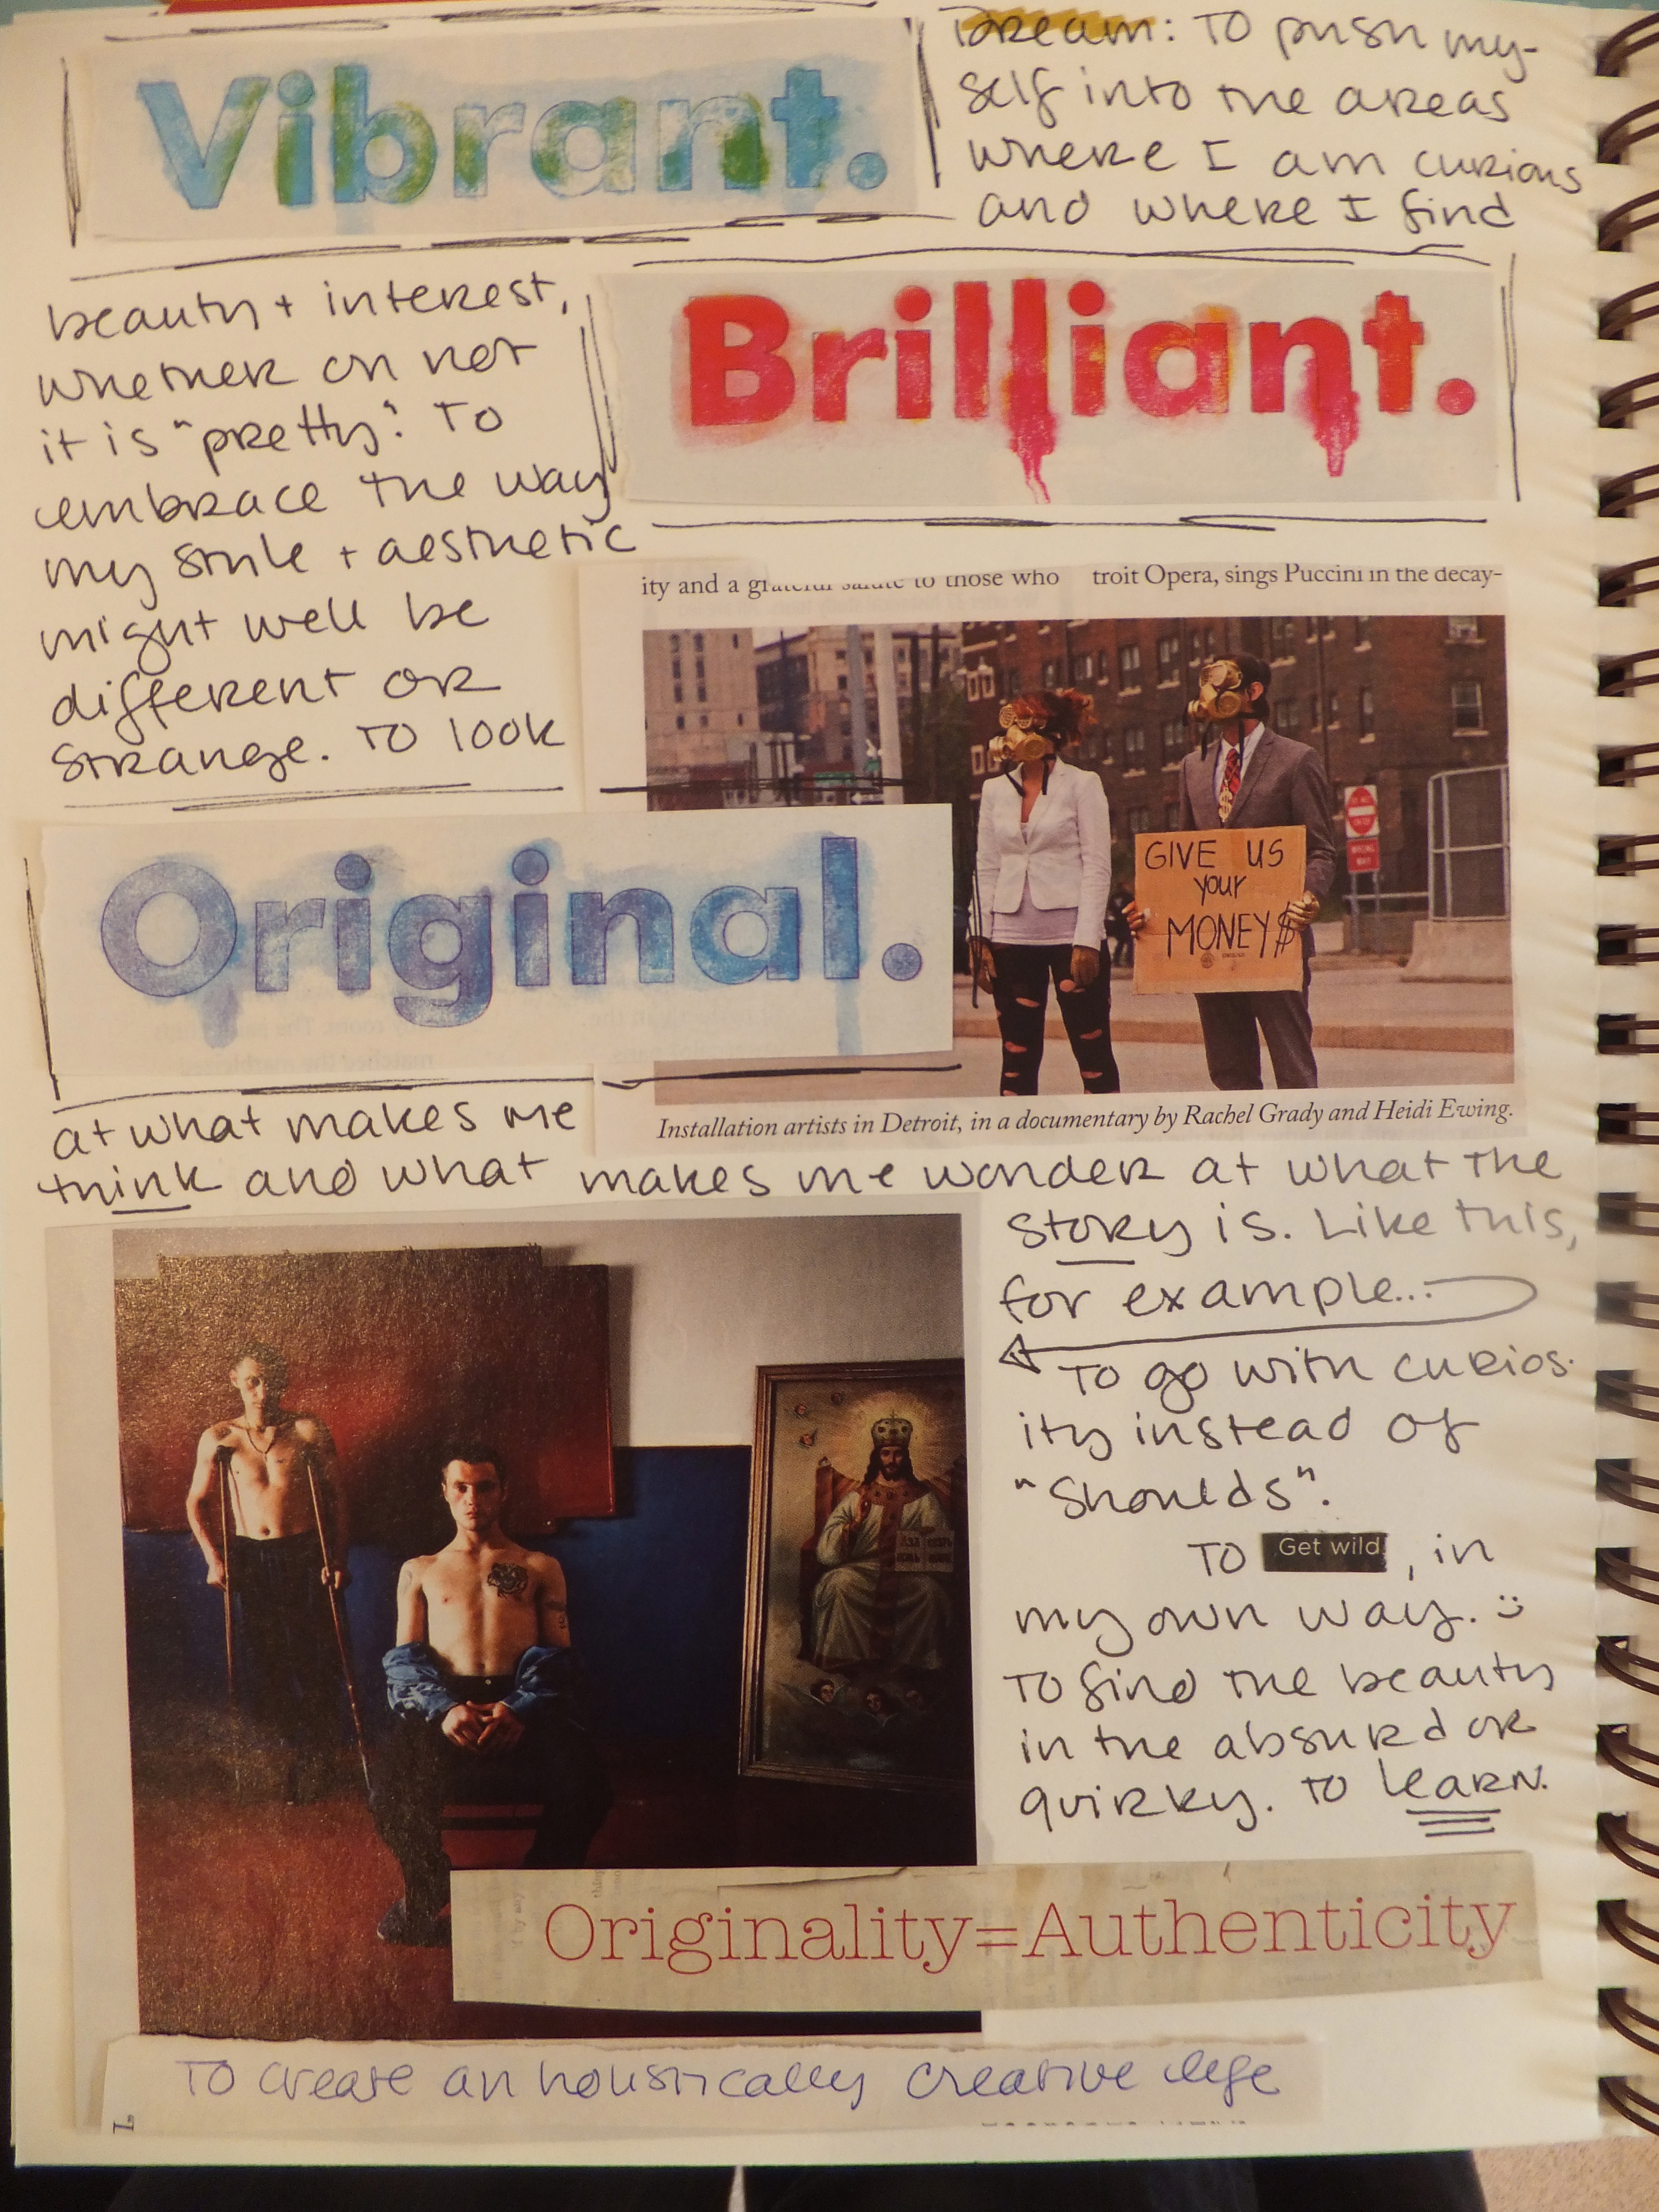 Vibrant.
Dream: To push my-
self into the areas
where I am curious
and where I find
beauty + interest,
whether or not
it is "pretty". To
embrace the way
my style + aesthetic
might well be
different or
strange. To look
Brilliant.
ity and a grateful salute to those who
troit Opera, sings Puccini in the decay-
GIVE US
your
MONEY$
Installation artists in Detroit, in a documentary by Rachel Grady and Heidi Ewing.
Original.
at what makes me
think and what makes me wonder at what the
story is. Like this,
for example...
To go with curios-
ity instead of
"Shoulds".
To Get wild, in
my own way. :)
To find the beauty
in the absurd or
quirky. To learn.
Originality=Authenticity
To create an holistically creative life